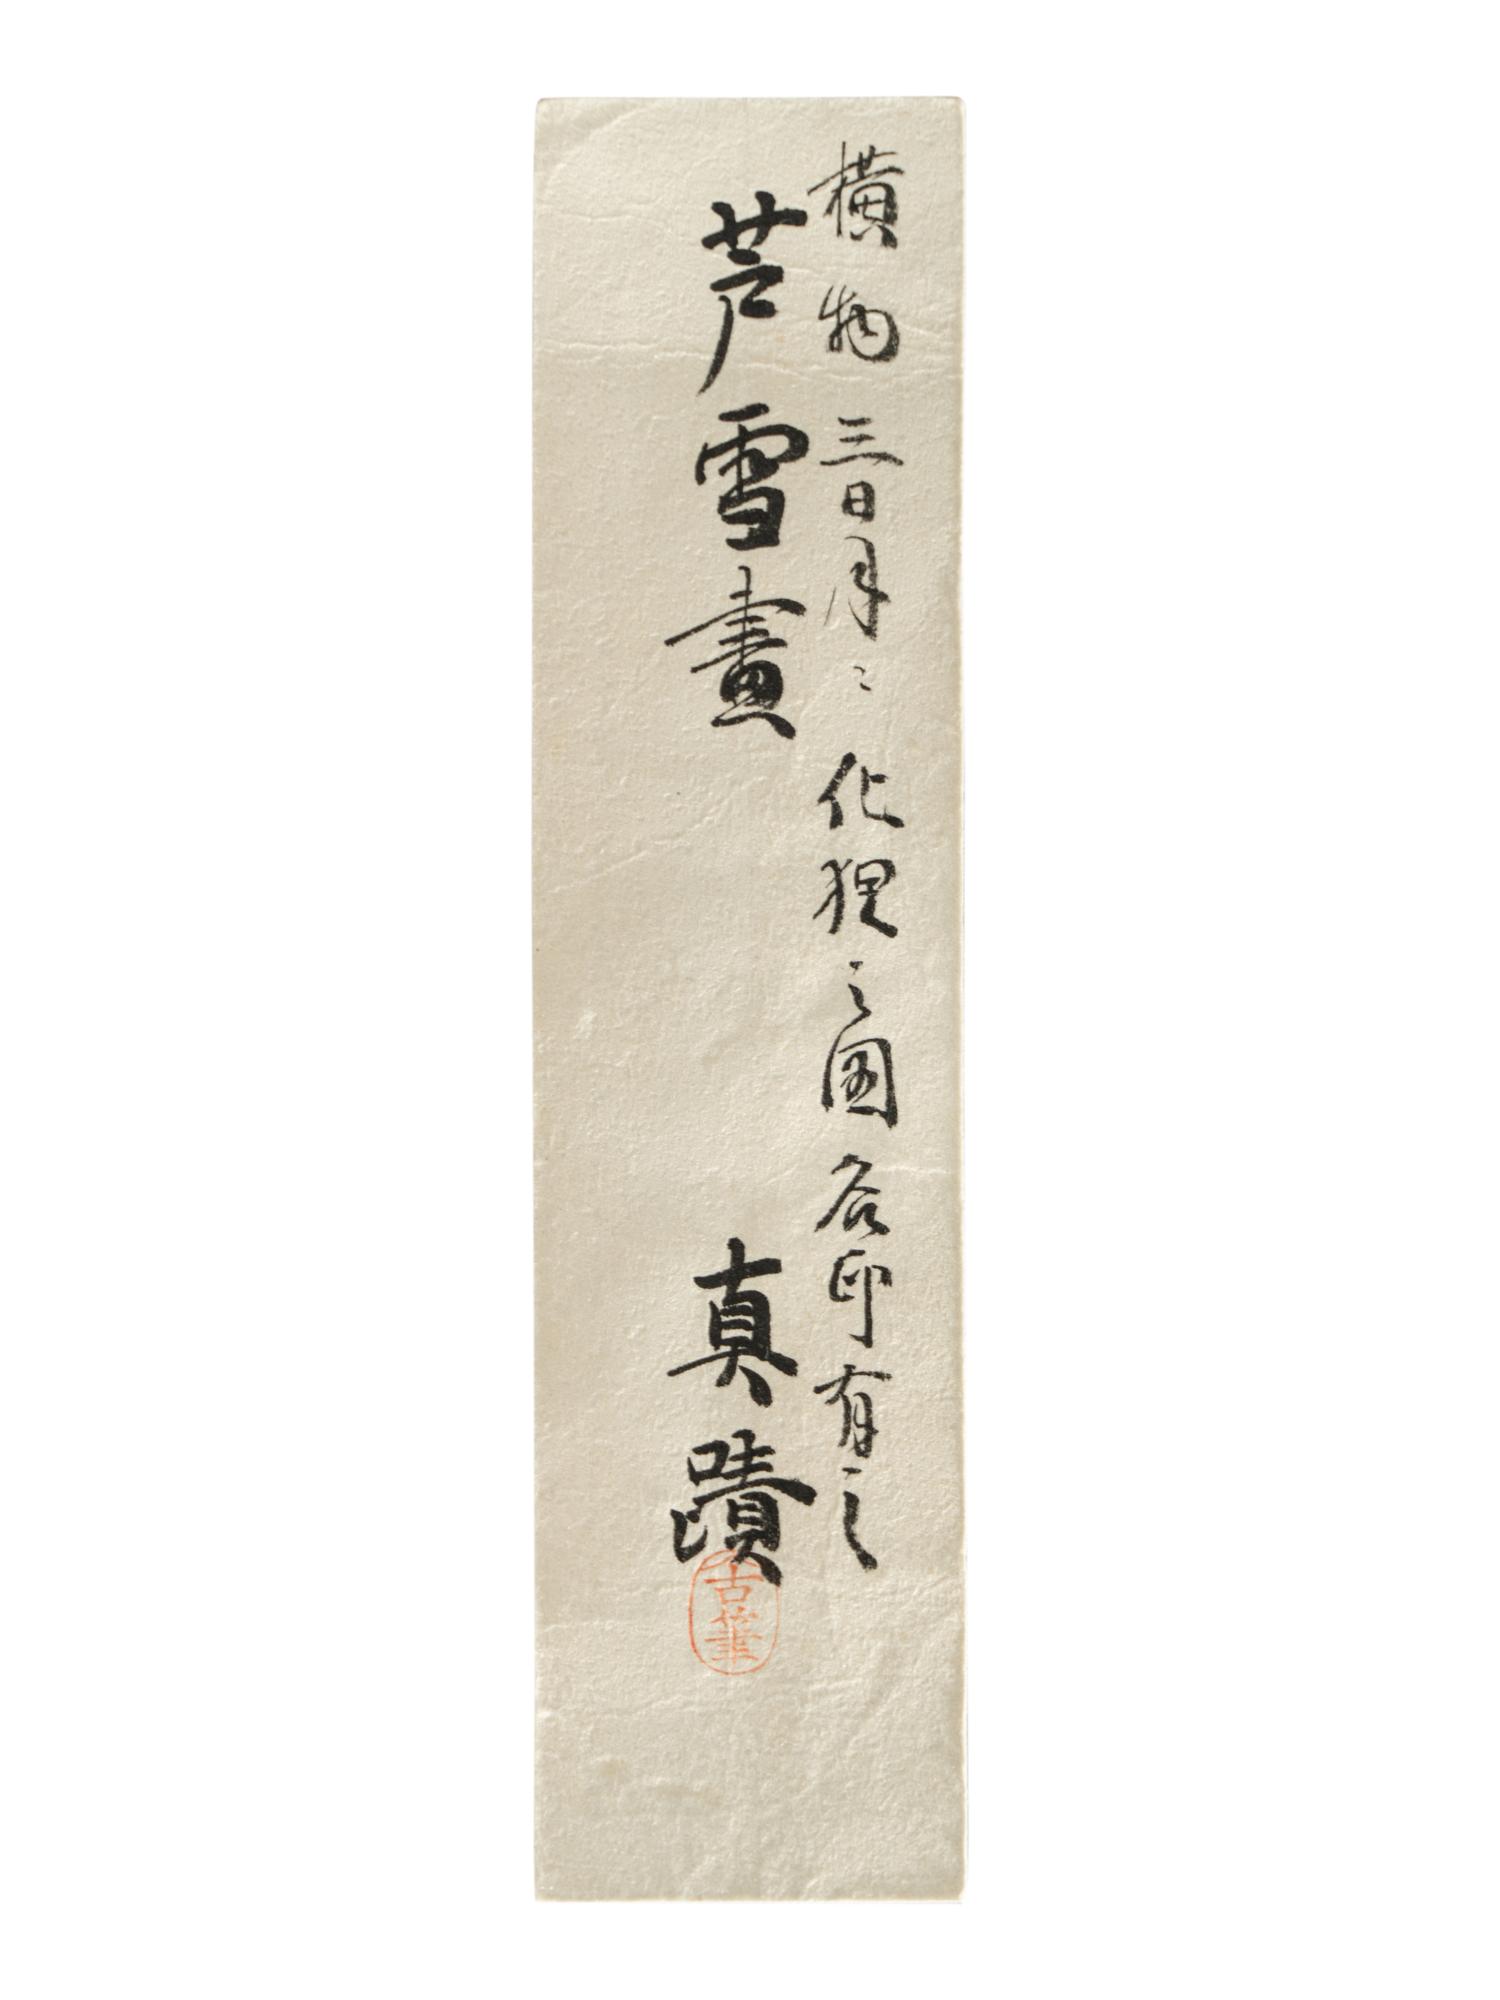 横物三日月ニ化狸之図名印有之
芦雪畫 真蹟
古筆